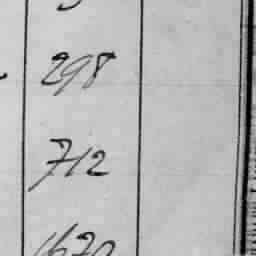 298
712
1670